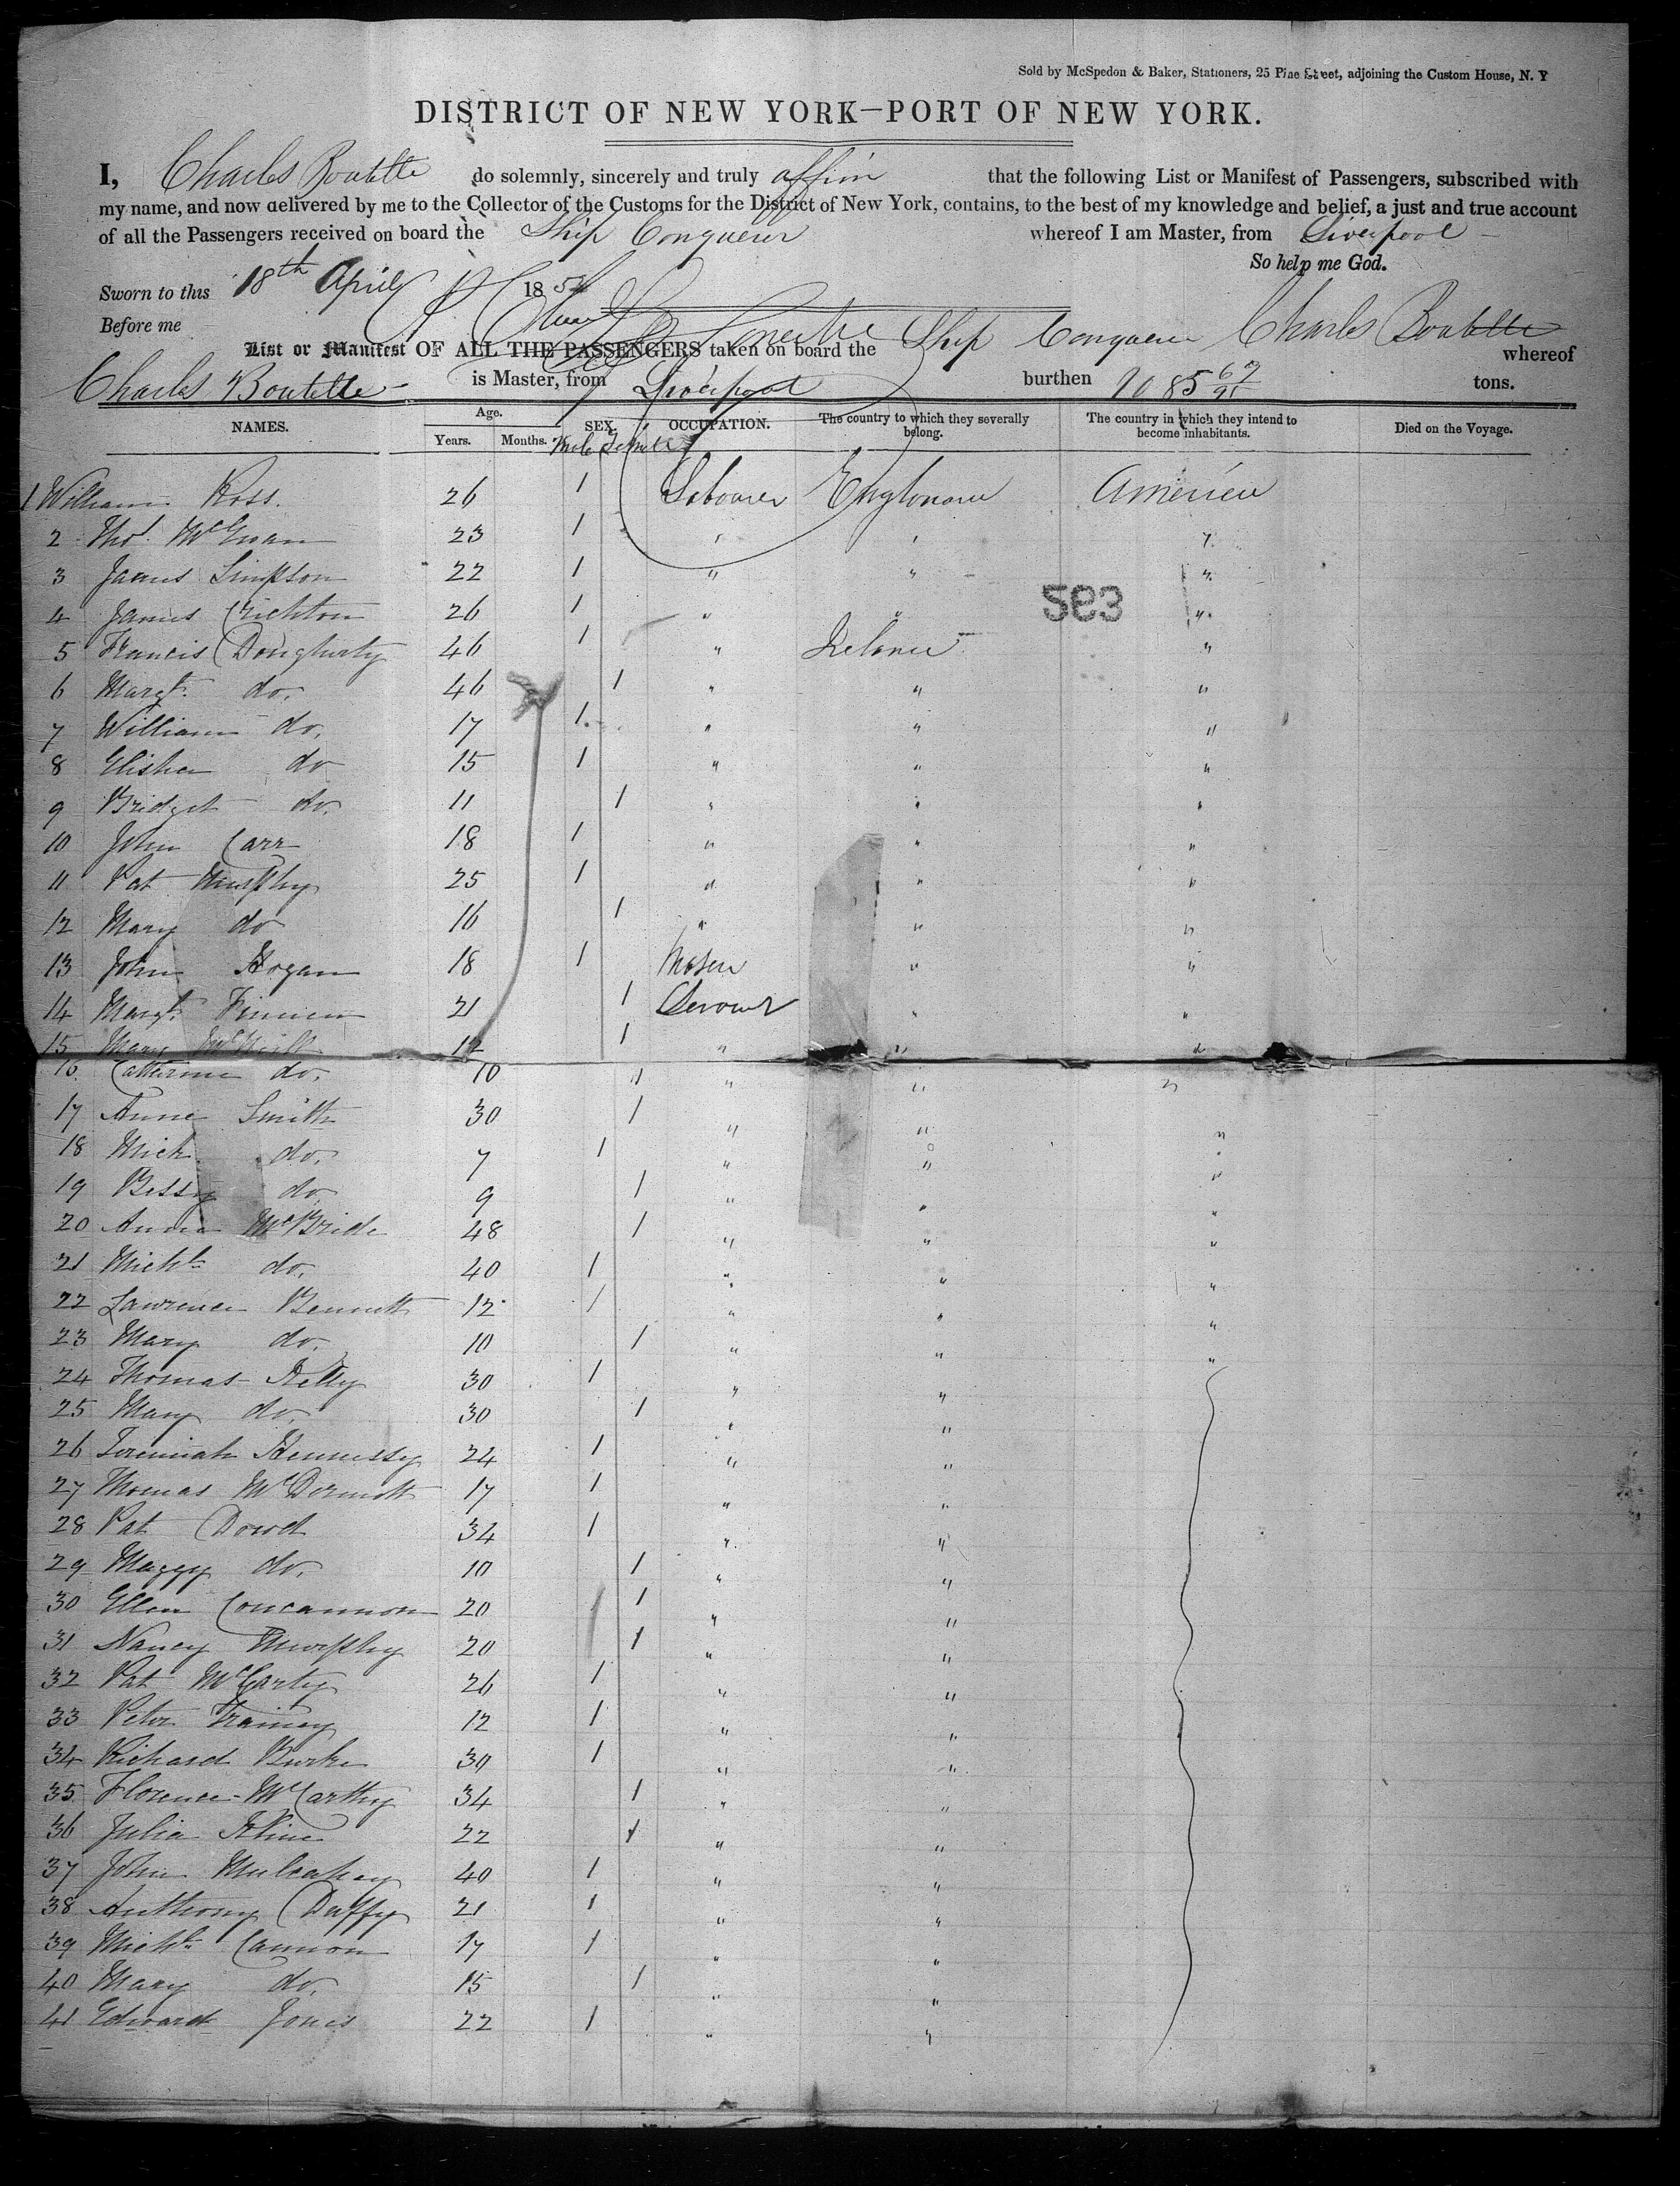 Sold by McSpedon & Baker, Stationers, 25 Pine Street, adjoining the Custom House, N. Y
DISTRICT OF NEW YORK—PORT OF NEW YORK.
I, Charles Boutelle do solemnly, sincerely and truly affirm that the following List or Manifest of Passengers, subscribed with
my name, and now delivered by me to the Collector of the Customs for the District of New York, contains, to the best of my knowledge and belief, a just and true account
of all the Passengers received on board the Ship Conqueror whereof I am Master, from Liverpool
So help me God.
Sworn to this 18th April 185
Before me Charles Boutelle
List or Manifest OF ALL THE PASSENGERS taken on board the Ship Conqueror whereof
Charles Boutelle is Master, from Liverpool burthen 1085 tons.
NAMES. Age. Years. Months. SEX. Male Female OCCUPATION. The country to which they severally belong. The country in which they intend to become inhabitants. Died on the Voyage.
1 William Ross. 26 1 Labourer America
2 Thos. McEwan 23 1 " " "
3 James Simpson 22 1 " " "
593
4 James Crichton 26 1 " " "
5 Francis Dougherty 46 1 " "
6 Margt. do. 46 1 " " "
7 William do. 17 1 " " "
8 Elisha do 15 1 " " "
9 Bridget do. 11 1 " " "
10 John Carr 18 1 " " "
11 Pat Murphy 25 1 " " "
12 Mary do 16 1 " " "
13 John Hogan 18 1 " "
14 Margt. 21 1 " "
15 Mary McNeill 12 1 " " "
16 Catherine do. 10 1 " " "
17 Anne Smith 30 1 " " "
18 Mich do. 7 1 " " "
19 Bessy do. 9 1 " " "
20 Anne McBride 48 1 " " "
21 Michl. do. 40 1 " " "
22 Lawrence Bennett 12 1 " " "
23 Mary do. 10 1 " " "
24 Thomas Kelly 30 1 " "
25 Mary do. 30 1 " "
26 Jeremiah Hennessy 24 1 " "
27 Thomas McDermott 17 1 " "
28 Pat Dowd 34 1 " "
29 Maggy do. 10 1 " "
30 Ellen Concannon 20 1 " "
31 Nancy Murphy 20 1 " "
32 Pat McCarty 26 1 " "
33 Peter Trainey 12 1 " "
34 Richard Burke 30 1 " "
35 Florence McCarthy 34 1 " "
36 Julia Kline 22 1 " "
37 John Mulcahay 40 1 " "
38 Anthony Duffy 21 1 " "
39 Michl. Cannon 17 1 " "
40 Mary do. 15 1 " "
41 Edward Jones 22 1 " "